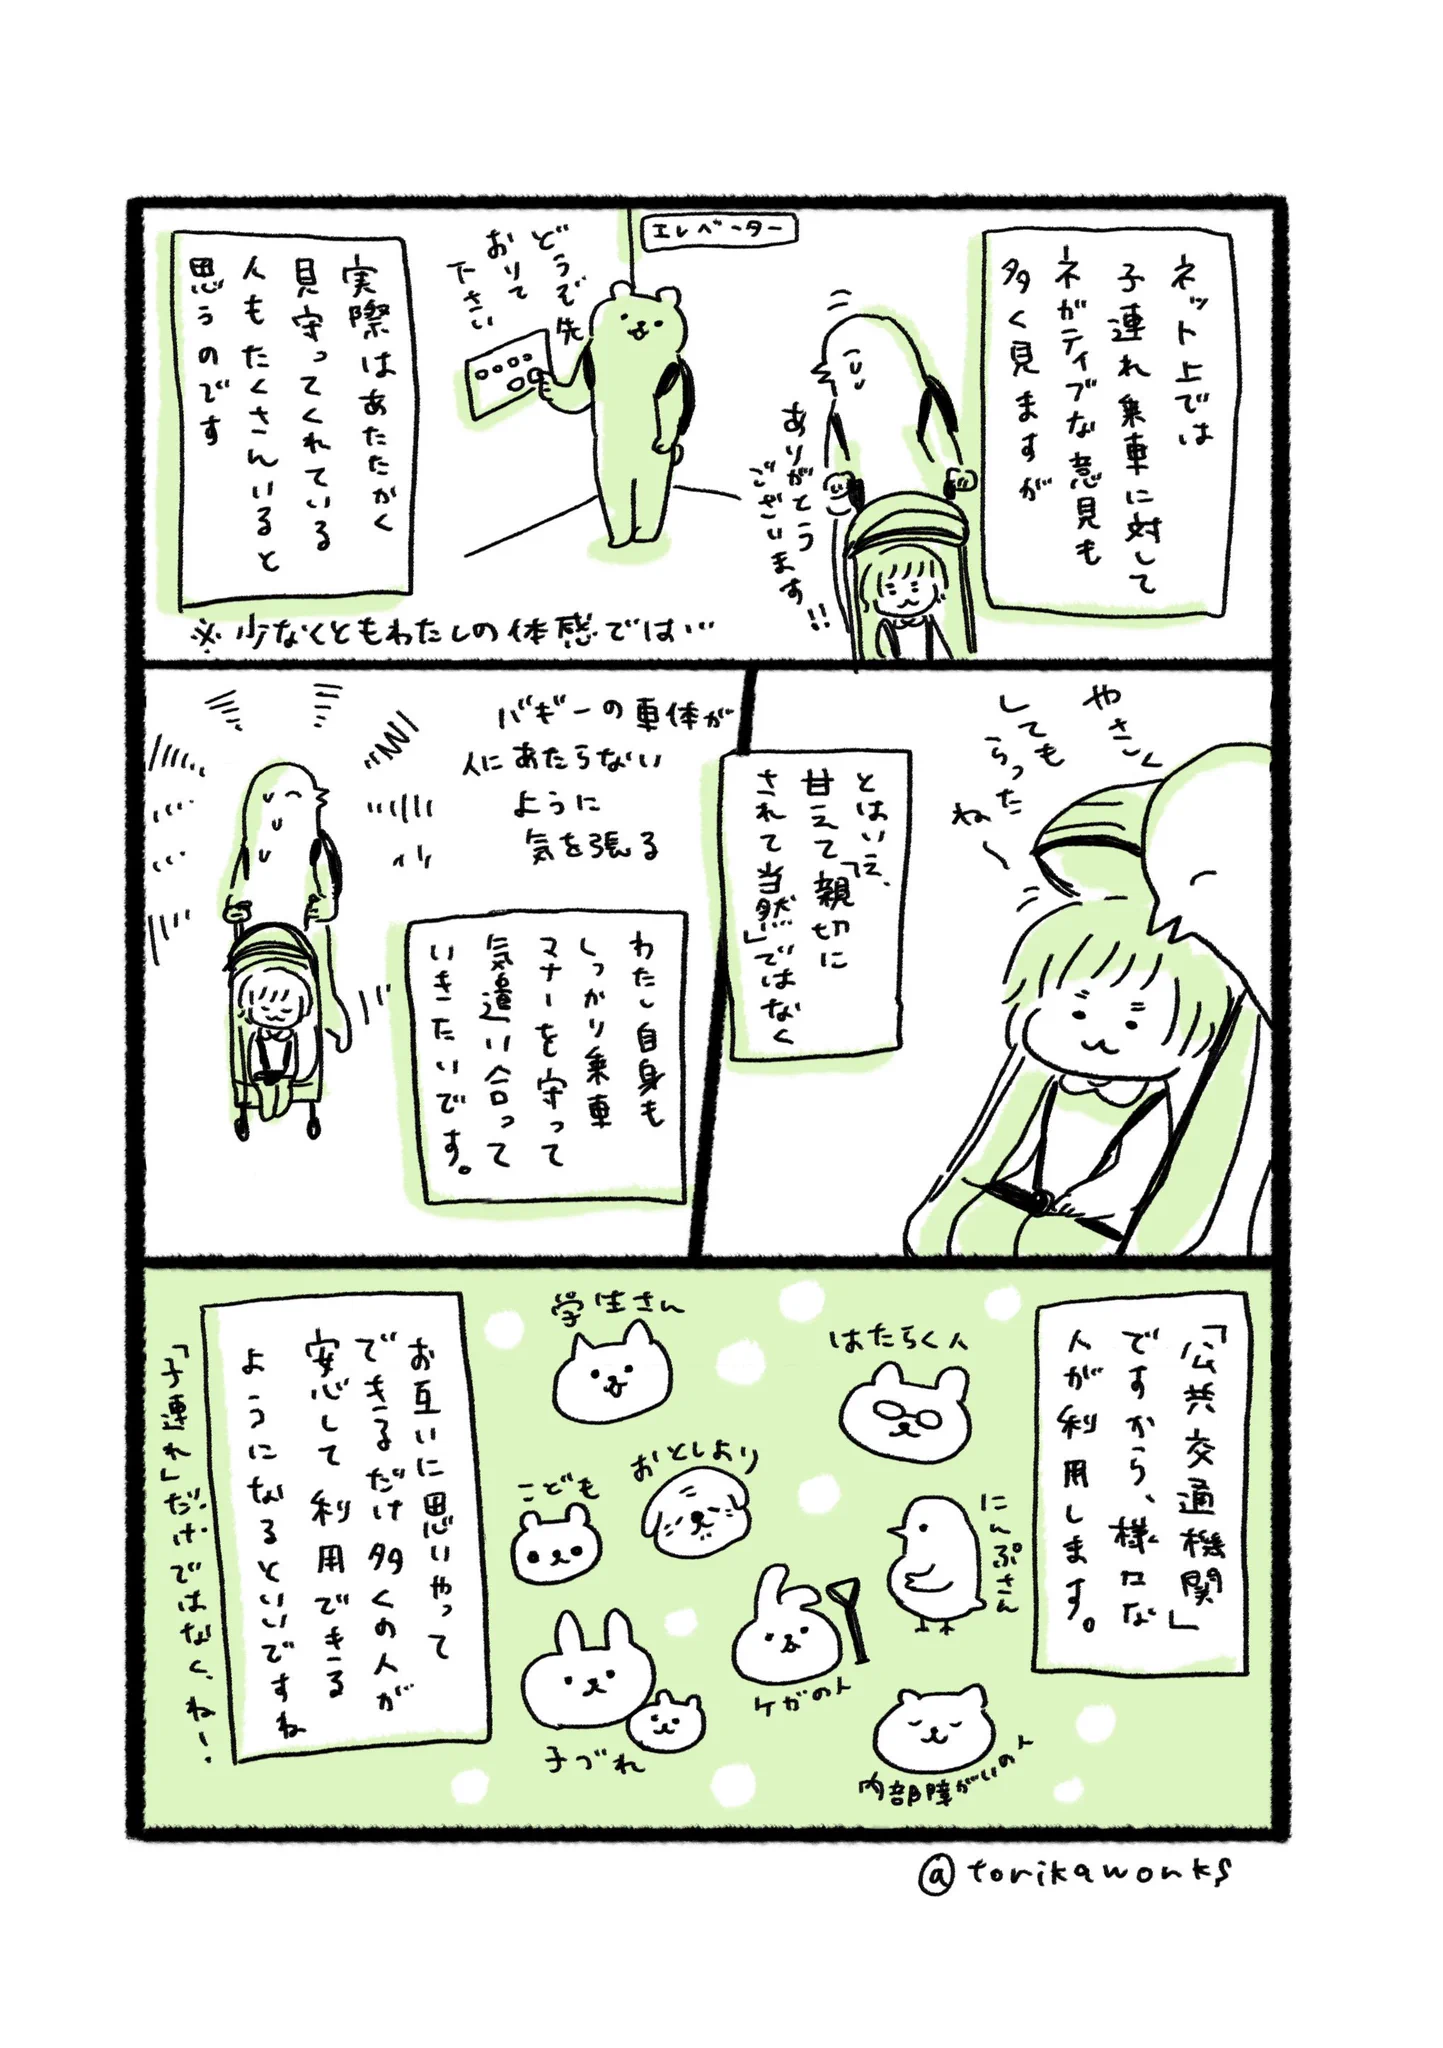 ネット上では
子連れ乗車に対して
ネガティブな意見も
多く見ますが
エレベーター
どうぞ先
おりて
下さい
ありがとう
ございます!!
実際はあたたかく
見守ってくれている
人もたくさんいると
思うのです
※少なくともわたしの体感では…
やさしく
しても
らった
ね〜
とはいえ、
甘えて「親切に
されて当然」ではなく
バギーの車体が
人にあたらない
ように
気を張る
わたし自身も
しっかり乗車
マナーを守って
気遣い合って
いきたいです。
「公共交通機関」
ですから、様々な
人が利用します。
はたらく人
学生さん
おとしより
こども
にんぷさん
ケガの人
子づれ
内部障がいの人
お互いに思いやって
できるだけ多くの人が
安心して利用できる
ようになるといいですね
「子連れ」だけではなく、ね…。
@torikaworks